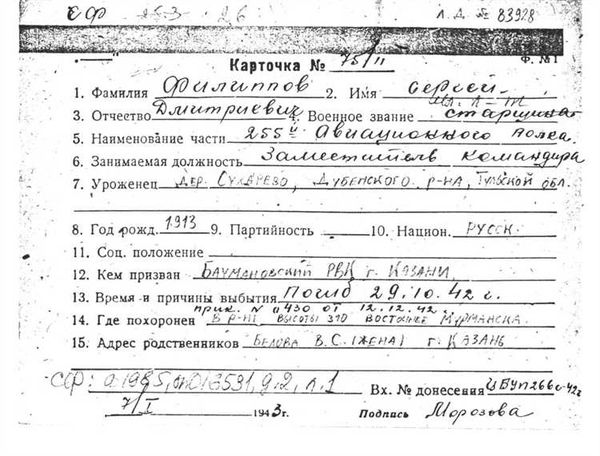 СФ 253 26 Л.Д. № 83928
Ф. № 1
Карточка № 75/II
1. Фамилия Филиппов 2. Имя Сергей
мл. л-т
3. Отчество Дмитриевич 4. Военное звание старшина
5. Наименование части 255й Авиационного полка
6. Занимаемая должность Заместитель командира
7. Уроженец дер. Сухарево, Дубенского р-на, Тульской обл.
8. Год рожд. 1913 9. Партийность 10. Национ. русск.
11. Соц. положение
12. Кем призван Баумановский РВК г. Казани
13. Время и причины выбытия Погиб 29.10.42 г.
прик. № 0430 от 12.12.42.
14. Где похоронен в р-не высоты 310 восточнее Мурманска
15. Адрес родственников Белова В.С. (жена) г. Казань
Вх. № донесения
7/I 1943г. Подпись Морозова